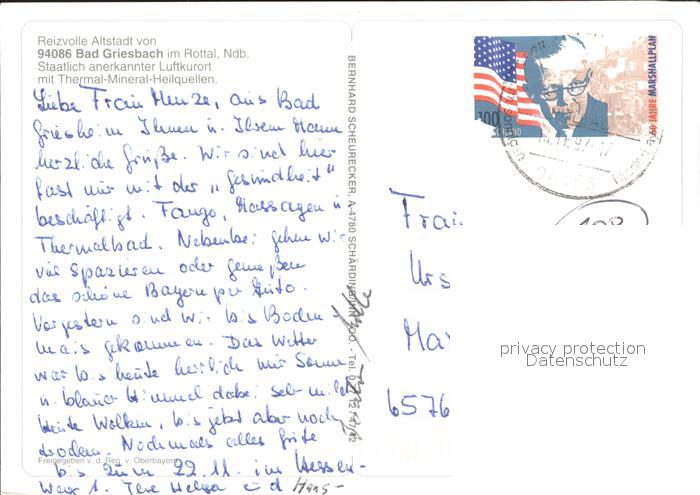 Reizvolle Altstadt von
94086 Bad Griesbach im Rottal, Ndb.
Staatlich anerkannter Luftkurort
mit Thermal-Mineral-Heilquellen.
Liebe Frau Menze, aus Bad
Griesheim Ihnen u. Ihrem Mann
herzliche Grüße. Wir sind hier
fast nur mit der „Gesundheit"
beschäftigt. Fango, Massagen u
Thermalbad. Nebenbei gehen wir
viel spazieren oder genießen
das schöne Bayern per Auto.
Vorgestern sind wir bis Boden-
mais gekommen. Das Wetter
war bis heute herrlich nur Sonne
u. blauer Himmel dabei sehr mild
heute Wolken, bis jetzt aber noch
trocken. Nochmals alles Gute
bis zum 22.11. im Hessen-
Ihre Helga und Hans-
Freigegeben v. d. Reg. v. Oberbayern
BERNHARD SCHEURECKER, A-4780 SCHÄRDING/INN
100
50 JAHRE MARSHALLPLAN
94086
Frau
Urs
Mar
6576
privacy protection
Datenschutz